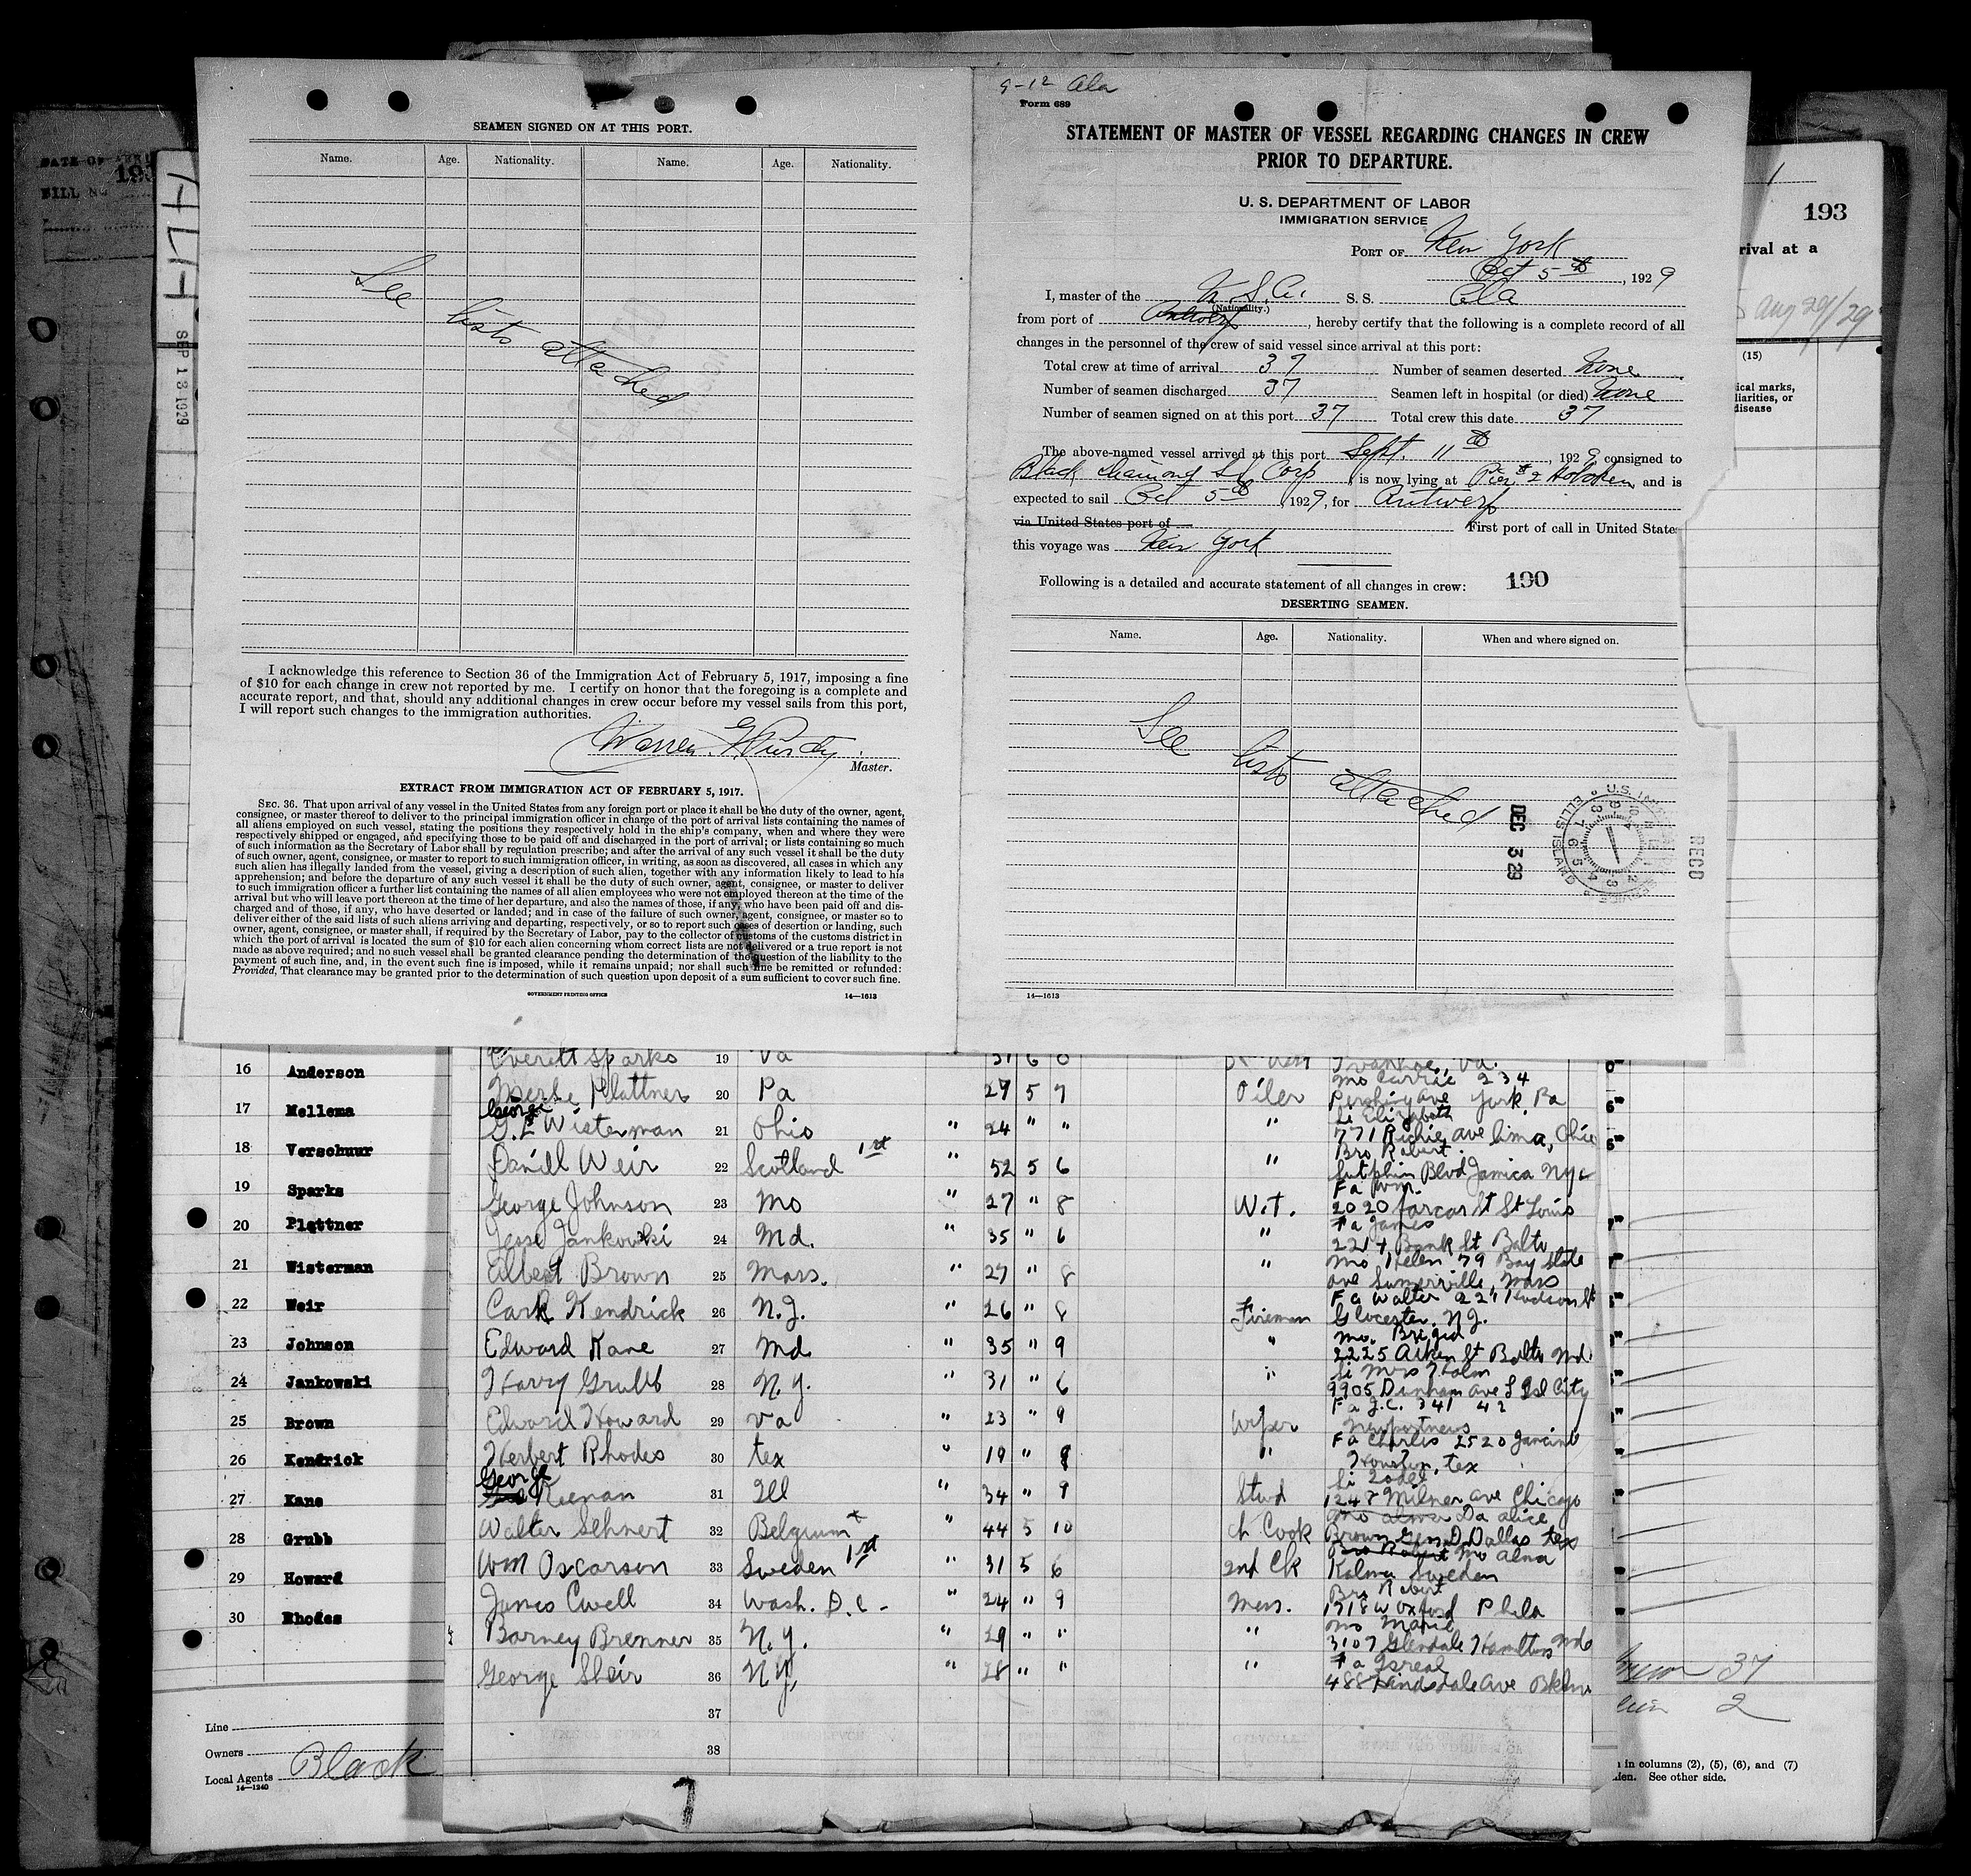 DATE OF
193
BILL No
SEP 13 1929
SEAMEN SIGNED ON AT THIS PORT.
Name. Age. Nationality. Name. Age. Nationality.
See lists attached
I acknowledge this reference to Section 36 of the Immigration Act of February 5, 1917, imposing a fine
of $10 for each change in crew not reported by me. I certify on honor that the foregoing is a complete and
accurate report, and that, should any additional changes in crew occur before my vessel sails from this port,
I will report such changes to the immigration authorities.
Warren G. Purdy
Master.
EXTRACT FROM IMMIGRATION ACT OF FEBRUARY 5, 1917.
SEC. 36. That upon arrival of any vessel in the United States from any foreign port or place it shall be the duty of the owner, agent,
consignee, or master thereof to deliver to the principal immigration officer in charge of the port of arrival lists containing the names of
all aliens employed on such vessel, stating the positions they respectively hold in the ship's company, when and where they were
respectively shipped or engaged, and specifying those to be paid off and discharged in the port of arrival; or lists containing so much
of such information as the Secretary of Labor shall by regulation prescribe; and after the arrival of any such vessel it shall be the duty
of such owner, agent, consignee, or master to report to such immigration officer, in writing, as soon as discovered, all cases in which any
such alien has illegally landed from the vessel, giving a description of such alien, together with any information likely to lead to his
apprehension; and before the departure of any such vessel it shall be the duty of such owner, agent, consignee, or master to deliver
to such immigration officer a further list containing the names of all alien employees who were not employed thereon at the time of the
arrival but who will leave port thereon at the time of her departure, and also the names of those, if any, who have been paid off and dis-
charged and of those, if any, who have deserted or landed; and in case of the failure of such owner, agent, consignee, or master so to
deliver either of the said lists of such aliens arriving and departing, respectively, or so to report such cases of desertion or landing, such
owner, agent, consignee, or master shall, if required by the Secretary of Labor, pay to the collector of customs of the customs district in
which the port of arrival is located the sum of $10 for each alien concerning whom correct lists are not delivered or a true report is not
made as above required; and no such vessel shall be granted clearance pending the determination of the question of the liability to the
payment of such fine, and, in the event such fine is imposed, while it remains unpaid; nor shall such fine be remitted or refunded:
Provided, That clearance may be granted prior to the determination of such question upon deposit of a sum sufficient to cover such fine.
GOVERNMENT PRINTING OFFICE 14—1613
9-12 Ala
Form 689
STATEMENT OF MASTER OF VESSEL REGARDING CHANGES IN CREW
PRIOR TO DEPARTURE.
U. S. DEPARTMENT OF LABOR
IMMIGRATION SERVICE
PORT OF New York
Oct 5th, 1929
I, master of the U.S.A. S. S. Ala
(Nationality.)
from port of Antwerp, hereby certify that the following is a complete record of all
changes in the personnel of the crew of said vessel since arrival at this port:
Total crew at time of arrival 37 Number of seamen deserted None
Number of seamen discharged 37 Seamen left in hospital (or died) None
Number of seamen signed on at this port 37 Total crew this date 37
The above-named vessel arrived at this port Sept. 11th, 1929 consigned to
Black Diamond SS Corp is now lying at Pier #2 Hoboken and is
expected to sail Oct 5th 1929, for Antwerp
via United States port of First port of call in United State
this voyage was New York
Following is a detailed and accurate statement of all changes in crew: 190
DESERTING SEAMEN.
Name. Age. Nationality. When and where signed on.
See lists attached
DEC 3 29
U.S. ELLIS ISLAND
RECD
14—1613
1
193
rival at a
Aug 29/29
(15)
ical marks,
liarities, or
disease
16 Anderson
17 Mellema
18 Verschuur
19 Sparks
20 Plettner
21 Wisterman
22 Weir
23 Johnson
24 Jankowski
25 Brown
26 Kendrick
27 Kane
28 Grubb
29 Howard
30 Rhodes
Line
Owners
Local Agents Black
14—1240
Everett Sparks 19 Va 31 6 0 Ivanhoe, Va.
Merle Plattner 20 Pa 27 5 7 Oiler Mo Carrie 234
Pershing ave York, Pa
George
G.E Wisterman 21 Ohio " 24 " " " Si Elizabeth
771 Richie ave Lima, Ohio
Daniel Weir 22 Scotland 1st " 52 5 6 " Bro Robert.
Sutphin Blvd Jamica Nyc
George Johnson 23 Mo " 27 " 8 W.T. Fa Wm.
2020 St St Louis
Jesse Jankowski 24 Md. " 35 " 6 " Fa James
Bank St Balto
Elbert Brown 25 Mass. " 27 " 8 " Mo Helen 79 Bay State
ave Sumerville, Mass
Carl Kendrick 26 N.J. " 26 " 8 Fireman Fa Walter 221 Hudson St
Glocester, N.J.
Edward Kane 27 Md " 35 " 9 " Mo. Brigid
2225 Aiken St Balto Md.
Harry Grubb 28 N.Y. " 31 " 6 " Si Mrs Holm
9905 Denham ave L Isl City
Edward Howard 29 Va " 23 " 9 Wiper Fa J.C. 341 42
Newportnews
Herbert Rhodes 30 tex " 19 " 8 " Fa Charles 2520
Houston, tex
George
Keenan 31 Ill " 34 " 9 Stwd Si
1247 Milner ave Chicago
Walter Sehnert 32 Belgium " 44 5 10 Ch Cook Da alice
Brown Gen D. Dallas tex
Wm Oscarson 33 Sweden 1st " 31 5 6 2nd Ck Mo Alma
Kalmar Sweden
James Cwell 34 Wash. D.C. " 24 " 9 Mess. Bro Robert
1718 W Oxford Phila
Barney Brenner 35 N.Y. " 29 " " " Mo Marie
3107 Glendale Hamilton Md
George Shair 36 N.Y. " 28 " " " Fa Isreal
488 Hindsdale Ave Bklm
37
38
37
2
in columns (2), (5), (6), and (7)
lien. See other side.
7